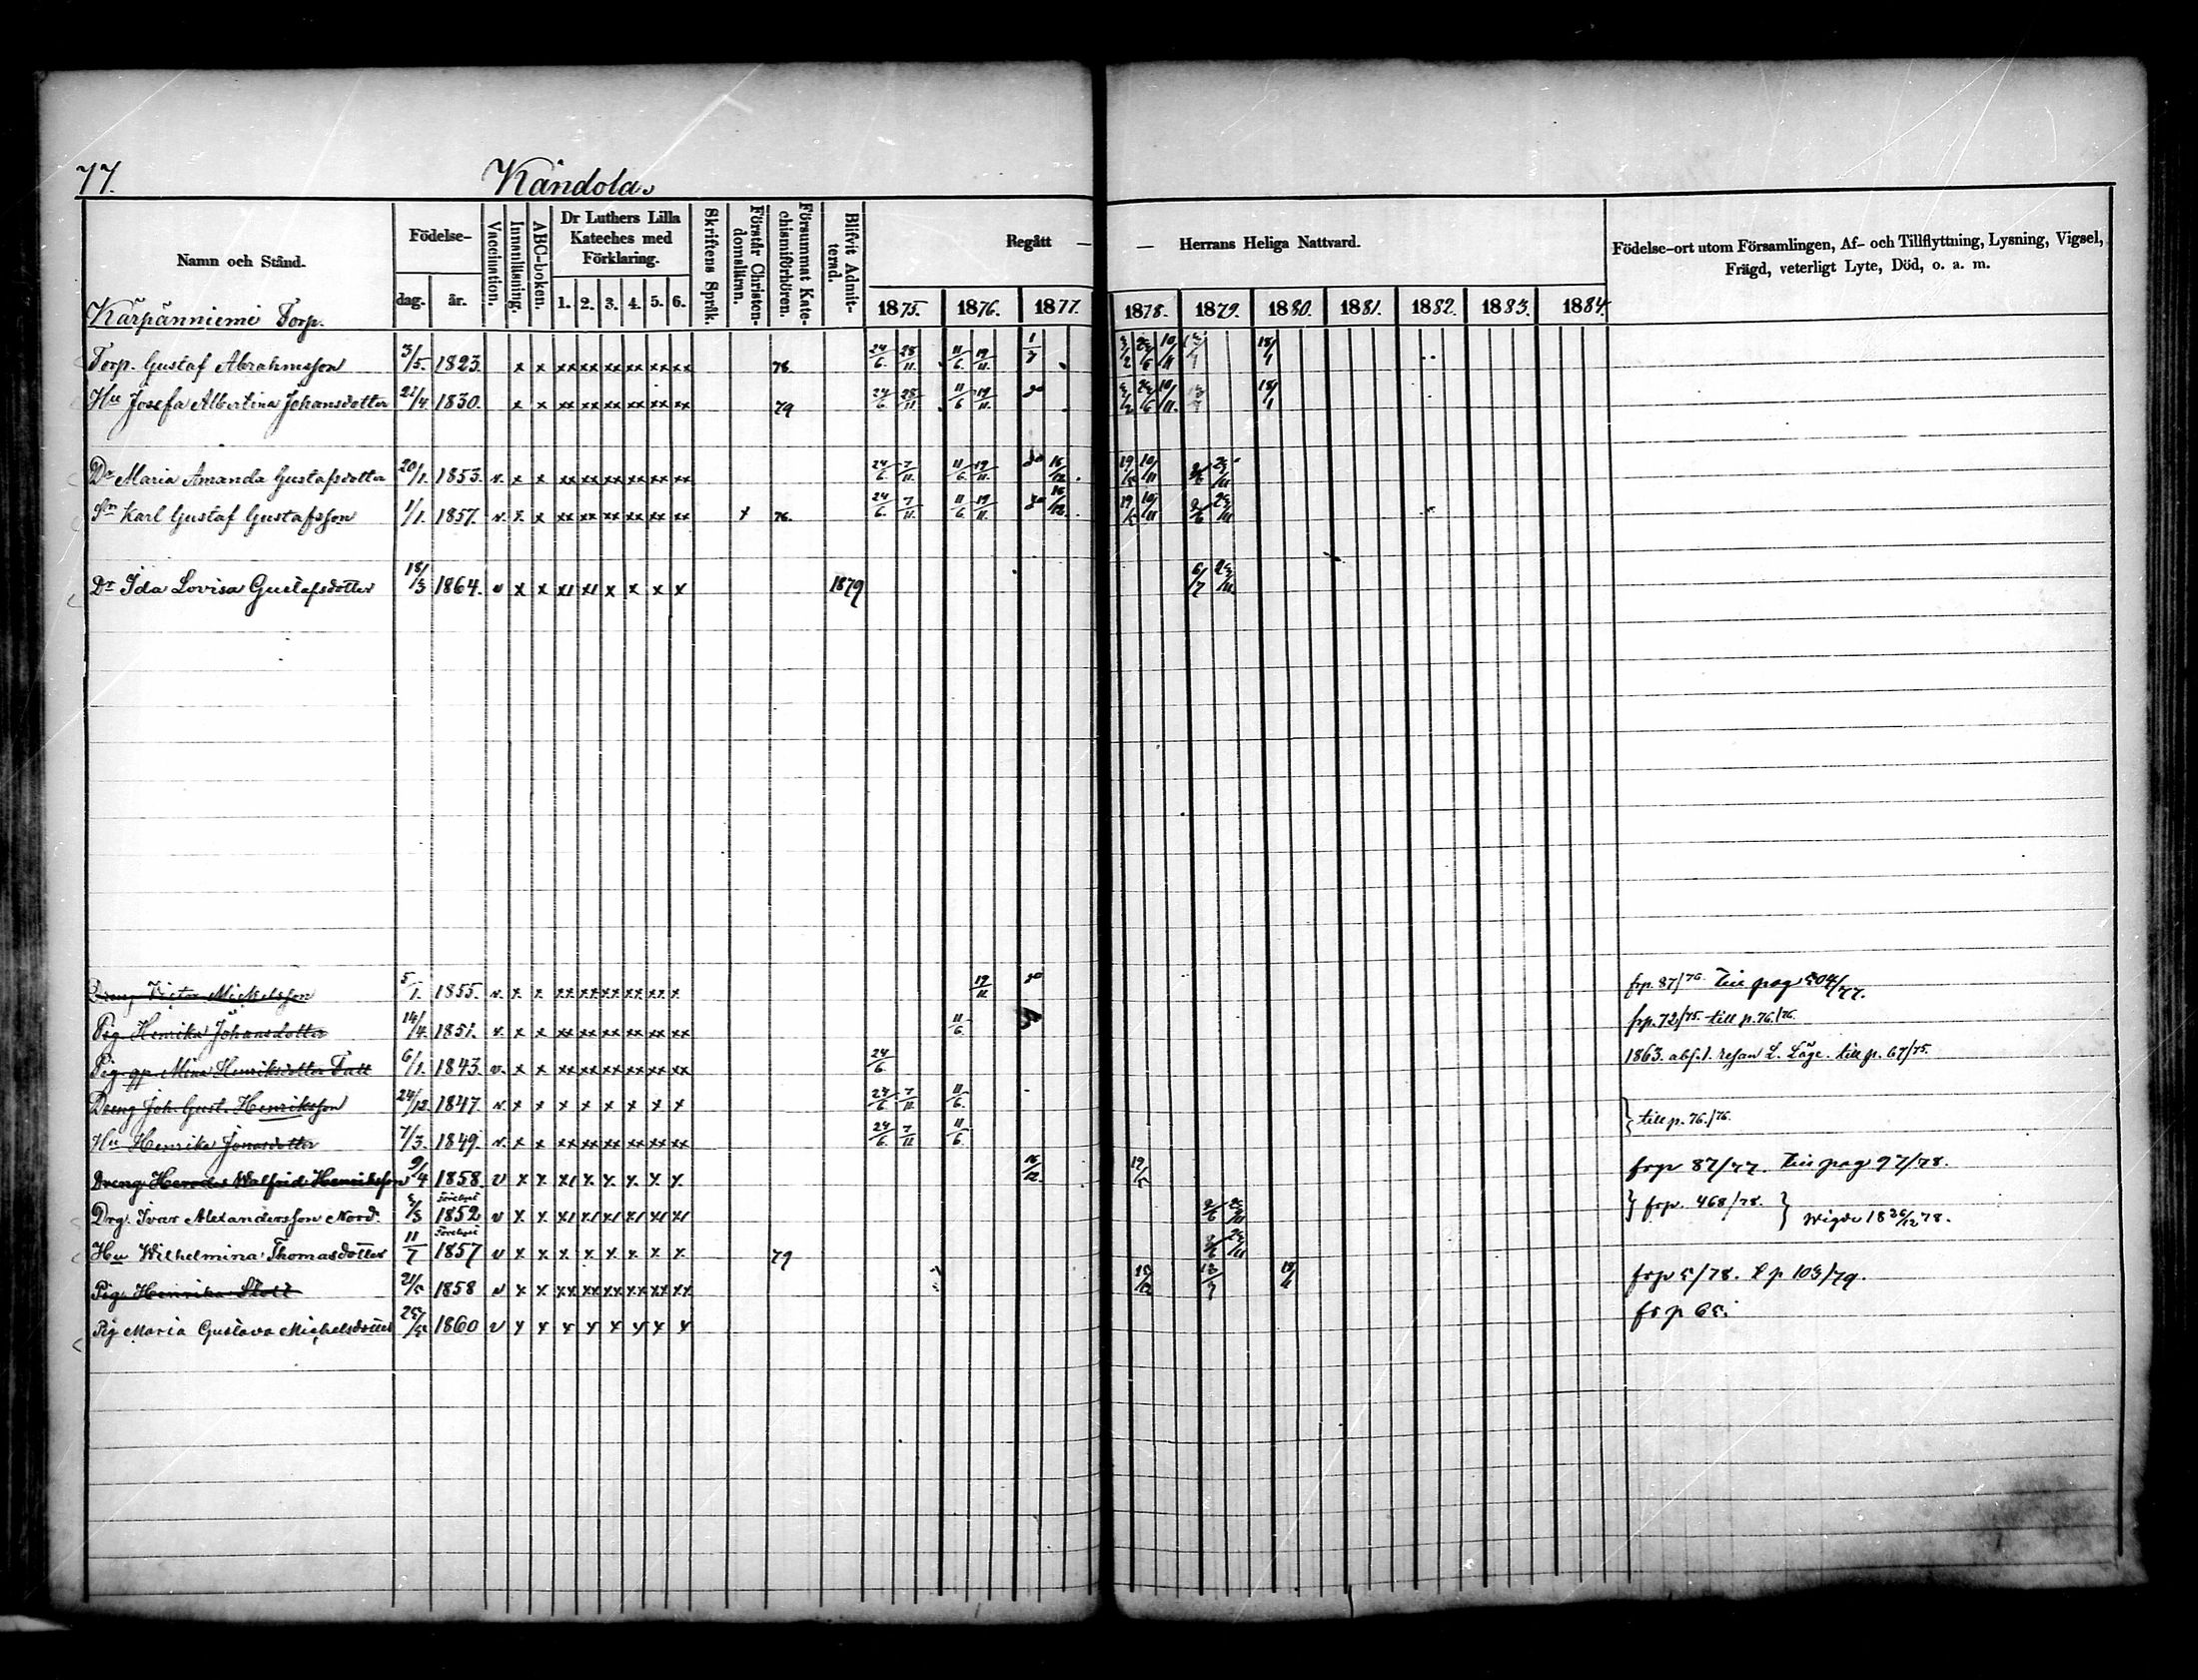 77.
Kändola.
Namn och Stånd.
Födelse-
dag.
år.
Vaccination.
Innanläsning.
ABC-boken.
Dr Luthers Lilla Kateches med Förklaring.
1. 2. 3. 4. 5. 6.
Skriftens Språk.
Förstår Christen-domsläran.
Försummat Kate-chismiförhören.
Blifvit Admit-terad.
Begått — — Herrans Heliga Nattvard.
1875. 1876. 1877. 1878. 1879. 1880. 1881. 1882. 1883. 1884.
Födelse-ort utom Församlingen, Af- och Tillflyttning, Lysning, Vigsel,
Frägd, veterligt Lyte, Död, o. a. m.
Kärpänniemi Torp.
Torp. Gustaf Abrahamsson 3/5. 1823. x x xx xx xx xx xx xx 24/6. 28/11. 11/6. 19/11.
Hu Josefa Albertina Johansdotter 1830. x x xx xx xx xx xx xx 79 24/6 28/11 11/6 19/11.
Dr Maria Amanda Gustafsdotter 20/1. 1853. v. x x xx xx xx xx xx xx 24/6. 7/11. 11/6. 19/11. 16/12. 19/5 10/11
Sn Karl Gustaf Gustafsson 1/1. 1857. v. x x xx xx xx xx xx xx x 76. 24/6. 7/11. 11/6. 19/11. 16/12. 19/5 10/11
Dr Ida Lovisa Gustafsdotter 18/3 1864. v x x x x x x 1879 6/7
Dreng Victor Mickelsson 5/1. 1855. v. x x xx xx xx xx xx x 19/11 frp. 87/76. Till pag 504/77.
Pig Henrika Johansdotter 14/4. 1851. v. x x xx xx xx xx xx xx 11/6. frp. 72/75. till p. 76/76.
Pig qp. Mina Henriksdotter Tall 6/1. 1843. v. x x xx xx xx xx xx xx 24/6. 1863. till p. 67/75.
Dreng Joh. Gust. Henriksson 24/12. 1847. v. x x x x x x x x 24/6 7/11 11/6.
} till p. 76/76.
Hu Henrika Jonasdotter 7/3. 1849. v. x x xx xx xx xx xx xx 24/6. 7/11 11/6.
Dreng Walfrid Henriksson 9/4 1858. v x x x x x x x 16/12. 19/5 frp 87/77. Till pag 97/78.
Drg. Ivar Alexandersson Nord. 1852 v x x } frp. 468/78. } Wigde 18 26/12 78.
Hu Wilhelmina Thomasdotter 11/7 1857 v x x x x x x x x 79
Pig. Henrika Stolt 1858 v x x xx xx xx xx xx xx frp 5/78. t p 103/79.
Pig Maria Gustava Michelsdotter 1860 v x x x x x x x x fr p 65.